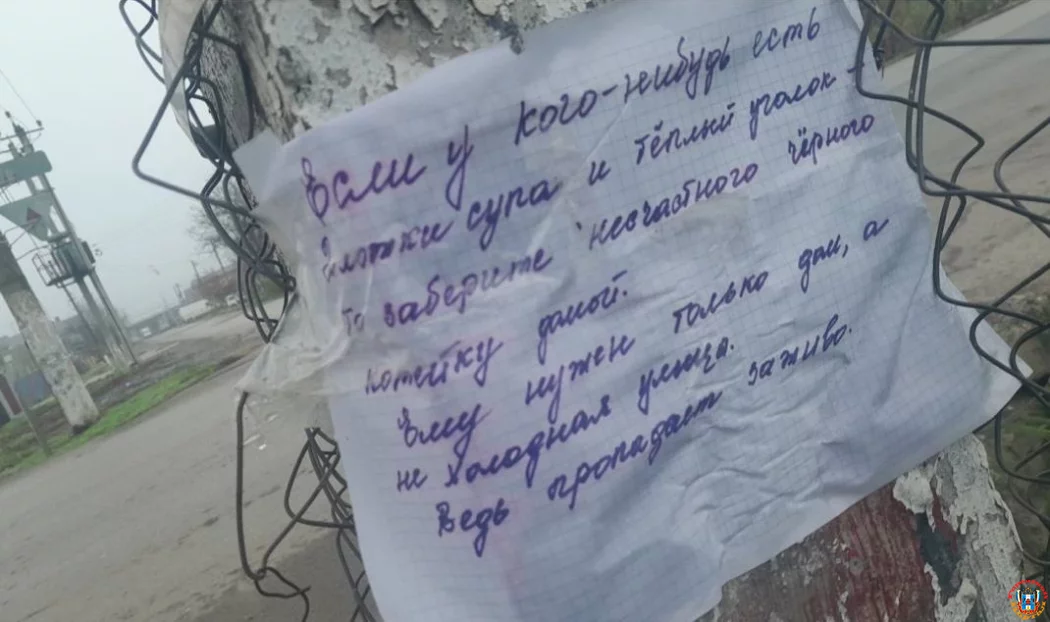 Если у кого-нибудь есть
глотки супа и тёплый уголок -
то заберите несчастного чёрного
котейку домой.
Ему нужен только дом, а
не холодная улица.
Ведь пропадает заживо.